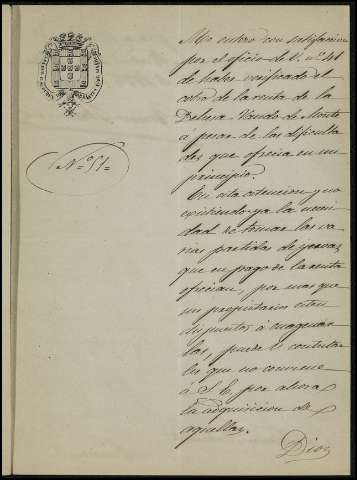 Nº 51
Me entero con satisfaccion
por el oficio de V. nº 41
de haber verificado el
cobro de la renta de la
Dehesa Viudo de Monte
a pesar de las dificulta
des que ofrecia en un
principio.
En esta atencion y no
existiendo ya la necesi
dad de tomar las va
rias partidas de yeguas
que en pago de la renta
ofrecian, por mas que
sus propietarios esten
dispuestos á
las, puede V. contestar
les que no conviene
á S. E. por ahora
la adquisicion de
aquellas.
Dios